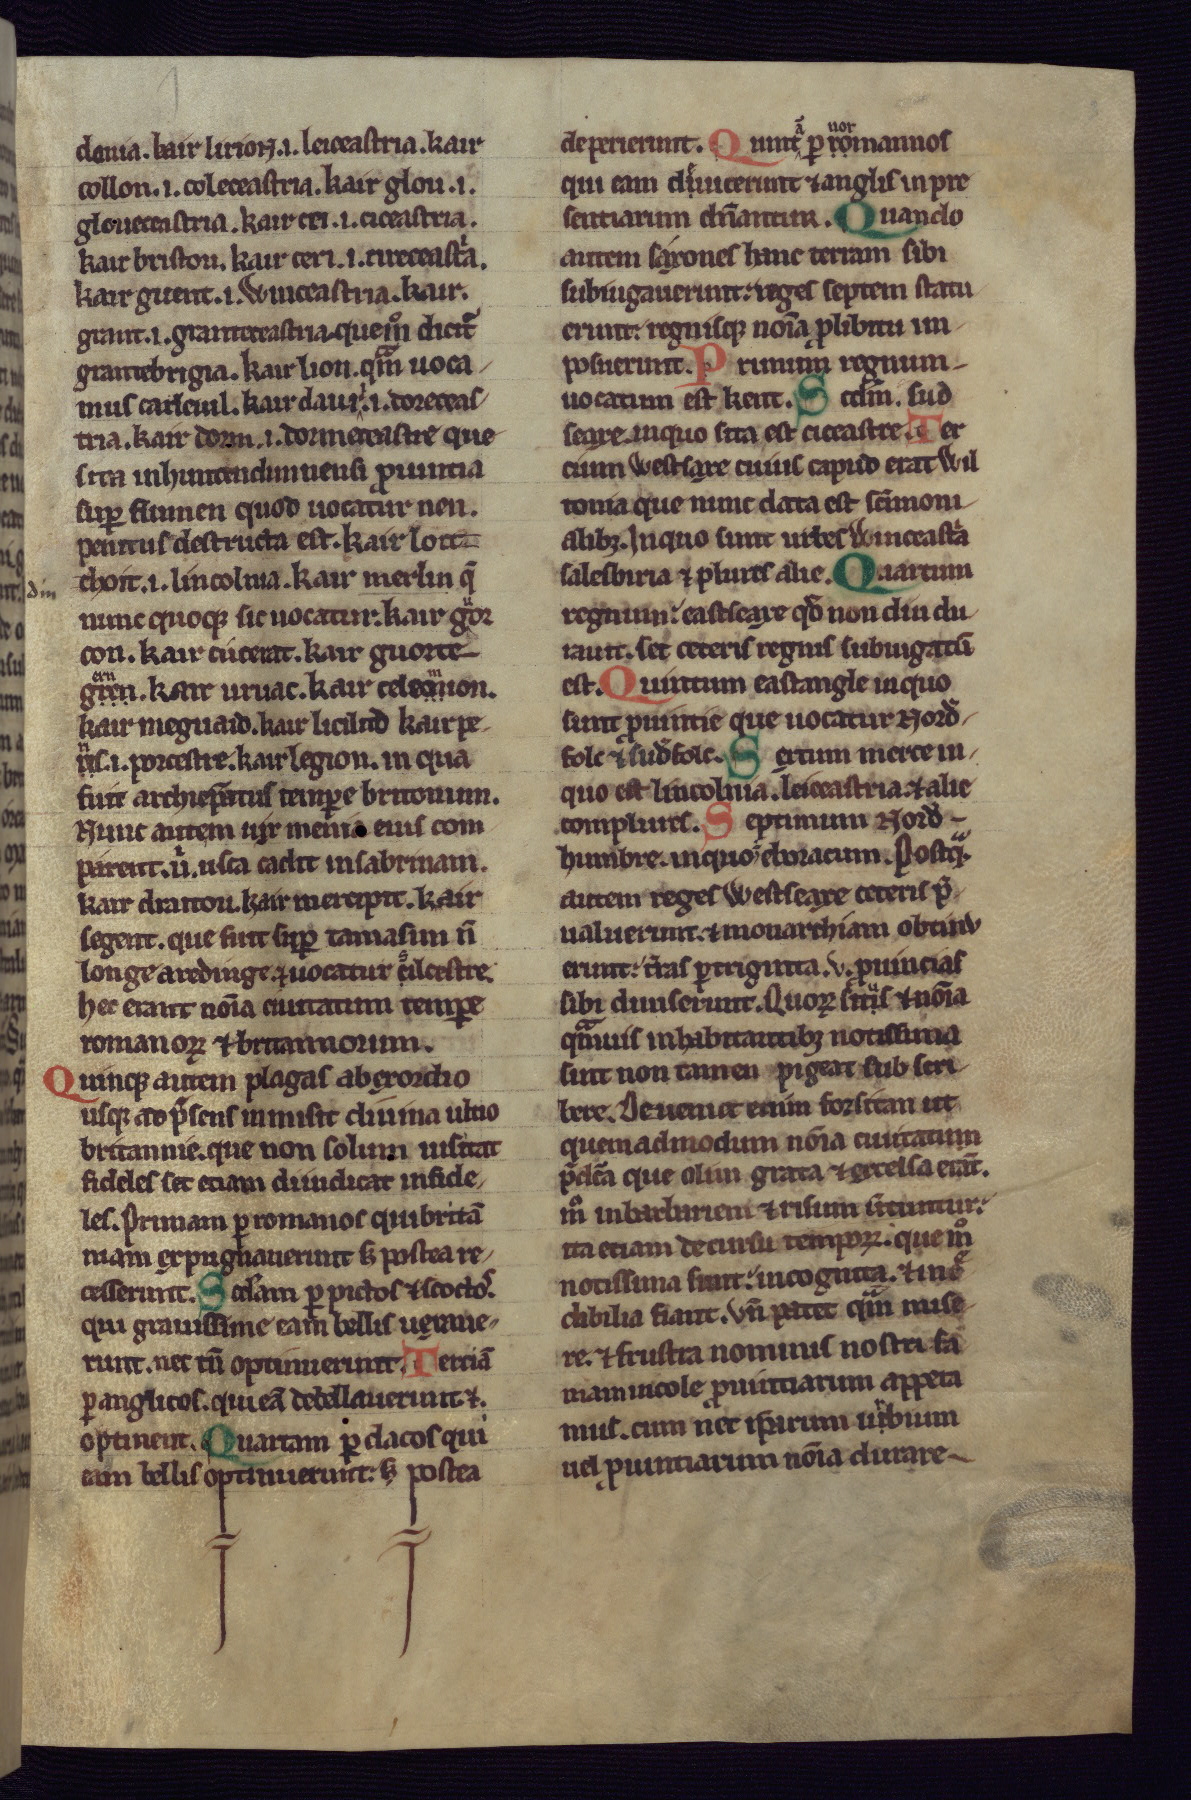 donia. kair lirion .i. leiceastria. kair
collon .i. coleceastria. kair glou .i.
gloueceastria. kair cei .i. ciceastria.
kair bristou. kair ceri .i. cireceastͥa.
kair guent .i. Winceastria. kair.
grant .i. granteceastria quem̊ dicit᷑
grantebrigia. kair lion. qᵃm̄ uoca-
mus carleuil. kair dauri .i. doreceas-
tria. kair dorm .i. dormeceastre que
sita in huntendununensi ꝓuintia
suꝑ flumen quod uocatur nen.
penitus destructa est. kair loit-
choit .i. lincolnia. kair merlin q̄
nunc quoqꝫ sic uocatur. kair gᵘor
con. kair cucerat. kair guorte-
gᵉʳⁿren. kair uruac. kair celeᵐmion.
kair meguaid. kair licilud kair pe-
ris .i. porcestre. kair legion. in qua
fuit archiep̄atus tempore britonum.
Nunc autem uix menia eius com
parent. uͥ. usca cadit in sabrinam.
kair draitou. kair mercipit. kair
segent. que fuit suꝑ tamasim n̄
longe a redinge. ⁊ uocatur cilcestre.
hec erant noīa ciuitatum tempore
romanoꝝ ⁊ britannorum.
Quinqꝫ autem plagas ab exordio
usqꝫ ad p̄sens inmisit diuina ultio
britannie. que non solum uisitat
fideles set etiam diiudicat infide-
les. Primam ꝑ romanos qui britā
niam expugnauerunt ꝫ postea re-
cesserunt. Scd̄am ꝑ pictos ⁊ scottos.
qui grauissime eam bellis uexaue-
runt. nec tn̄ optinuerunt. Terciā
ꝑ anglicos. qui eā debellauerunt ⁊.
optinent. Quartam ꝑ dacos qui
eam bellis optinuerunt: ꝫ postea
deperierunt. Quintā ꝑ romannos
uor
qui eam diuicerunt ⁊ anglis in pre
sentiarum dn̄antur. Quando
autem saxones hanc terram sibi
subiugauerunt: reges septem statu
erunt: regnisqꝫ noīa ꝓ libitu im-
posuerunt. Primum regnum-
uocatum est kent. Scd̄m. sud
sexe. in quo sita est ciceastre. Ter
cium Westsaxe cuius capud erat Wil
tonia que nunc data est sc̄imoni
alibꝫ. In quo sunt urbes Winceastͥa
salesbiria ⁊ plures alie. Quartum
regnum: eastsexe qd̄ non diu du-
rauit. set ceteris regnis subiugatū
est. Quintum eastangle in quo
sunt ꝓuintie que uocatur Nord-
folc ⁊ sudfolc. Sextum merce in-
quo est lincolnia. leiceastria. ⁊ alie
complures. Septimum Nord-
humbre. in quo eboracum. Postqᵃ.
autem reges Westsexe ceteris p̄-
ualuerunt. ⁊ monarchiam obtinu
erunt: t̄ras ꝑ triginta .v. ꝓuincias
sibi diuiserunt. Quoꝝ situs ⁊ noīa
qᵃmuis inhabitantibꝫ notissima
sint non tamen pigeat sub scri-
bere. Deueniet enim forsitan ut
quemadmodum noīa ciuitatum
p̄dc̄a que olim grata ⁊ excelsa erāt.
m̊ in barbariem ⁊ risum situntur:
ita etiam decursu tempoꝝ. que m̊
notissima sunt: incognita. ⁊ incͤ
dibilia fiant. Vn̄ patet qᵃm mise-
re. ⁊ frustra nominis nostri fa
mam incole ꝓuintiarum appeta
mus. cum nec ip̄arum urbium
uel ꝓuintiarum noīa durare-